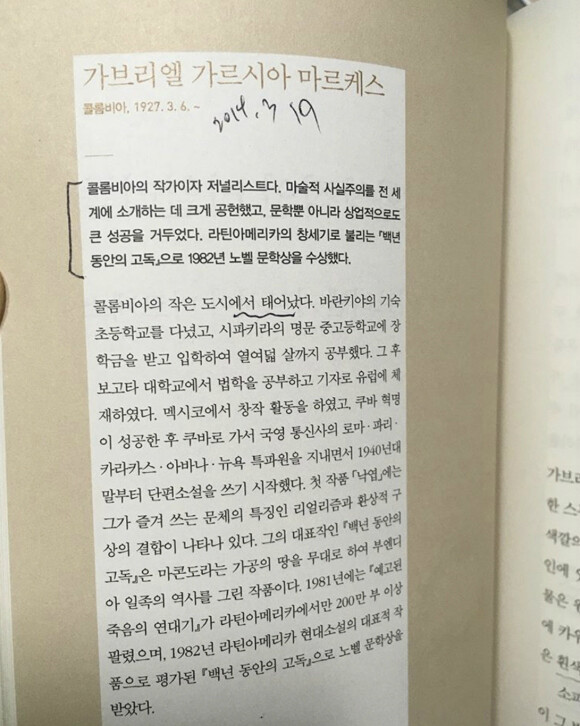 가브리엘 가르시아 마르케스
콜롬비아, 1927. 3. 6. ~
2014. 3 19
콜롬비아의 작가이자 저널리스트다. 마술적 사실주의를 전 세
계에 소개하는 데 크게 공헌했고, 문학뿐 아니라 상업적으로도
큰 성공을 거두었다. 라틴아메리카의 창세기로 불리는 『백년
동안의 고독』으로 1982년 노벨 문학상을 수상했다.
콜롬비아의 작은 도시에서 태어났다. 바란키야의 기숙
초등학교를 다녔고, 시파키라의 명문 중고등학교에 장
학금을 받고 입학하여 열여덟 살까지 공부했다. 그 후
보고타 대학교에서 법학을 공부하고 기자로 유럽에 체
재하였다. 멕시코에서 창작 활동을 하였고, 쿠바 혁명
이 성공한 후 쿠바로 가서 국영 통신사의 로마·파리·
카라카스·아바나·뉴욕 특파원을 지내면서 1940년대
말부터 단편소설을 쓰기 시작했다. 첫 작품 「낙엽」에는
그가 즐겨 쓰는 문체의 특징인 리얼리즘과 환상적 구
상의 결합이 나타나 있다. 그의 대표작인 『백년 동안의
고독』은 마콘도라는 가공의 땅을 무대로 하여 부엔디
아 일족의 역사를 그린 작품이다. 1981년에는 『예고된
죽음의 연대기』가 라틴아메리카에서만 200만 부 이상
팔렸으며, 1982년 라틴아메리카 현대소설의 대표적 작
품으로 평가된 『백년 동안의 고독』으로 노벨 문학상을
받았다.
가브리
한 스
색깔의
인에
물은
에 카우
은 흰색
소파
이 그